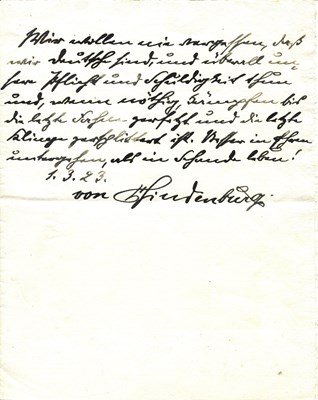 Wir wollen nie vergessen, daß
wir Deutsch sind, und überall un-
sere Pflicht und Schuldigkeit thun
und, wenn nöthig, kämpfen bis
die letzte Fahne zerfetzt und die letzte
Klinge zersplittert ist. Besser in Ehren
untergehen, als in Schande leben!
1. 3. 23.
von Hindenburg.